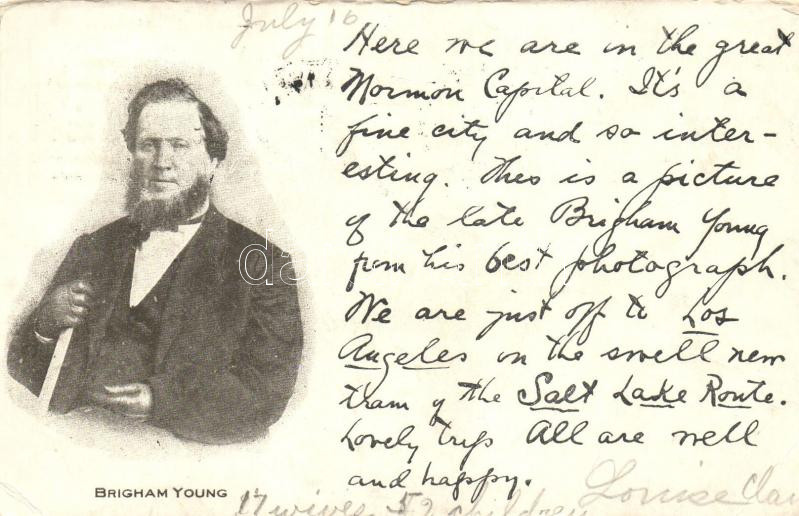 July 16
Here we are in the great
Mormon Capital. It's a
fine city and so inter-
esting. This is a picture
of the late Brigham Young
from his best photograph.
We are just off to Los
Angeles on the swell new
train of the Salt Lake Route.
Lovely trip All are well
and happy.
Louise
BRIGHAM YOUNG
17 wives - 52 children